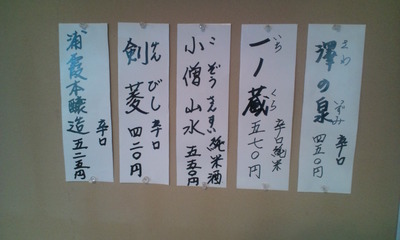 澤の泉
さわ
いずみ
辛口
四五〇円
一ノ蔵
いち
くら
辛口純米
五七〇円
小僧山水
こぞうさんすい
純米酒
五五〇円
剣菱
けん
びし
辛口
四二〇円
浦霞本醸造
辛口
五二五円